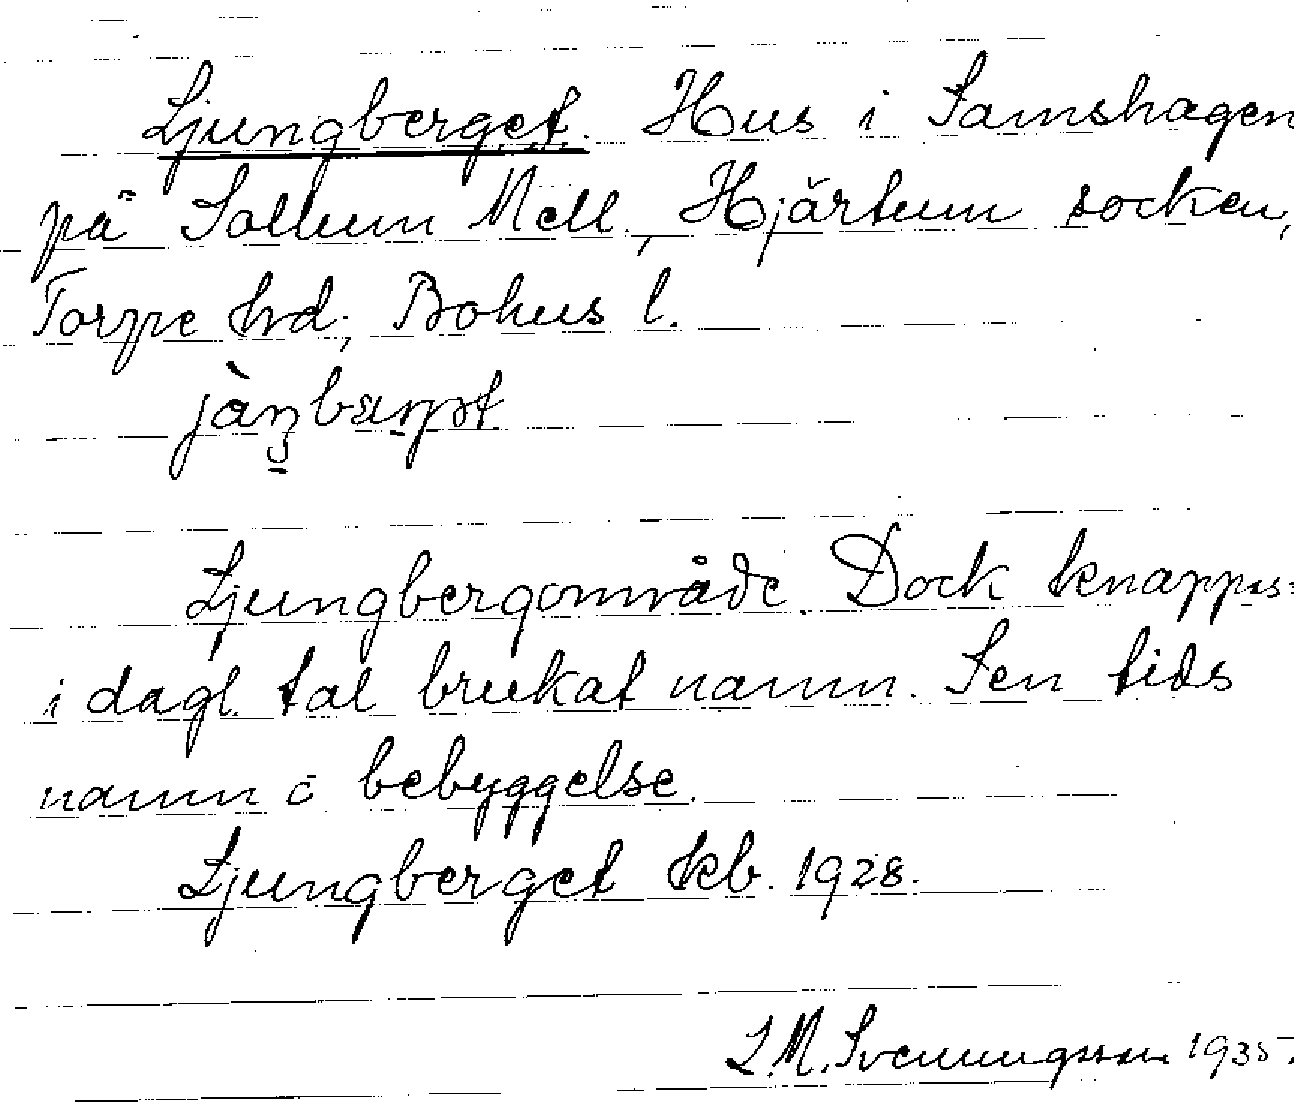 Ljungberget. Hus i Samshagen
på Sollum Mell., Hjärtum socken,
Torpe hrd., Bohus l.

Ljungbergområde. Dock knappas=
i dagl. tal brukat namn. Sen tids
namn o bebyggelse.
Ljungberget kb. 1928.
L.M. Svenungsson 1935.